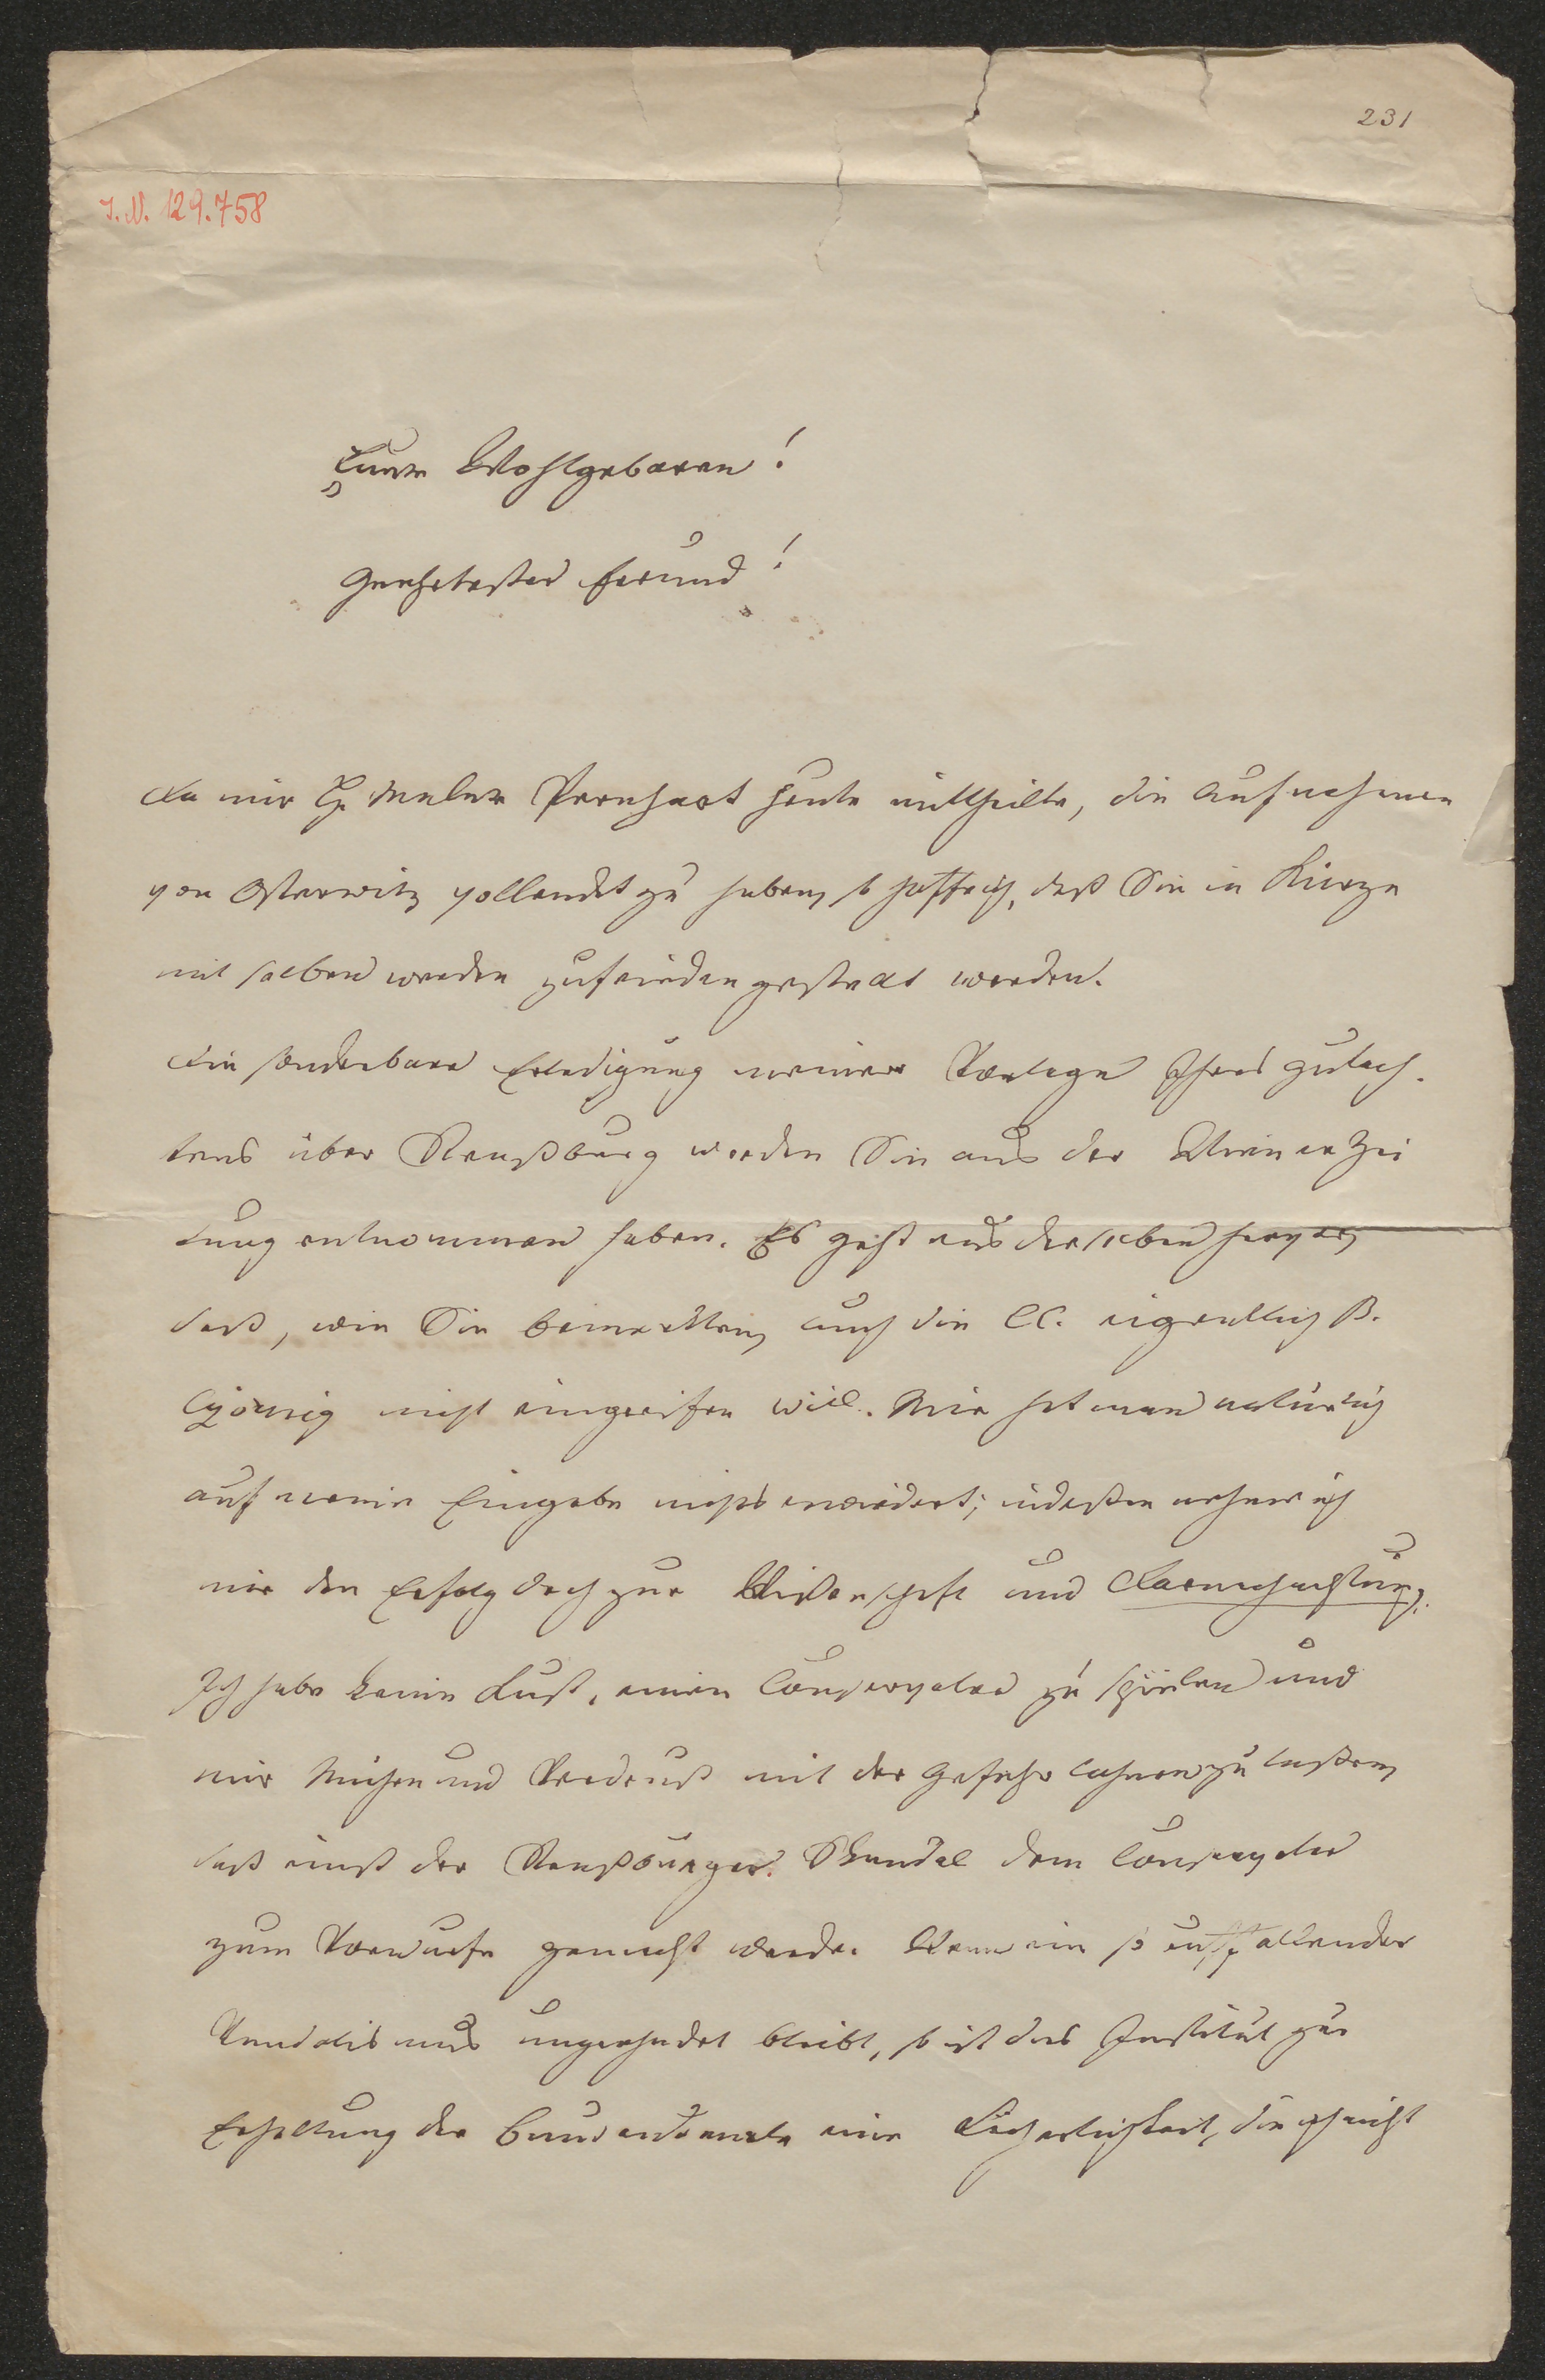 231
I.N. 129.758
Euer Wohlgeboren!
Geehrtester Freund!
Da mir H. Maler Pernhart heute mittheilte, die Aufnahmen
von Osterwitz vollendet zu haben, so hoffe ich, daß Sie in Kürze
mit selben werden zufriedengestellt werden.
Die sonderbare Erledigung meiner Vorlage Ihres Gutach-
tens über Straßburg werden Sie aus der Wiener Zei
tung entnommen haben. Es geht aus derselben hervor,
daß, wie Sie bemerkten, auch die CC. eigentlich B.
Czörnig nicht eingreifen will. Mir hat man natürlich
auf meine Eingabe nichts erwidert; indeßen nehme ich
mir den Erfolg doch zur Wissenschaft und Darnachachtung.
Ich habe keine Lust, einen Conservator zu spielen und
mir Mühen und Verdruß mit der Gefahr lohnen zu laßen,
daß einst der Straßburger Skandal dem Conservator
zum Vorwurfe gemacht werde. Wenn ein so auffallender
Vandalismus ungeahndet bleibt, so ist das Institut zur
Erhaltung der Baudenkmale eine Lächerlichkeit, die ich nicht